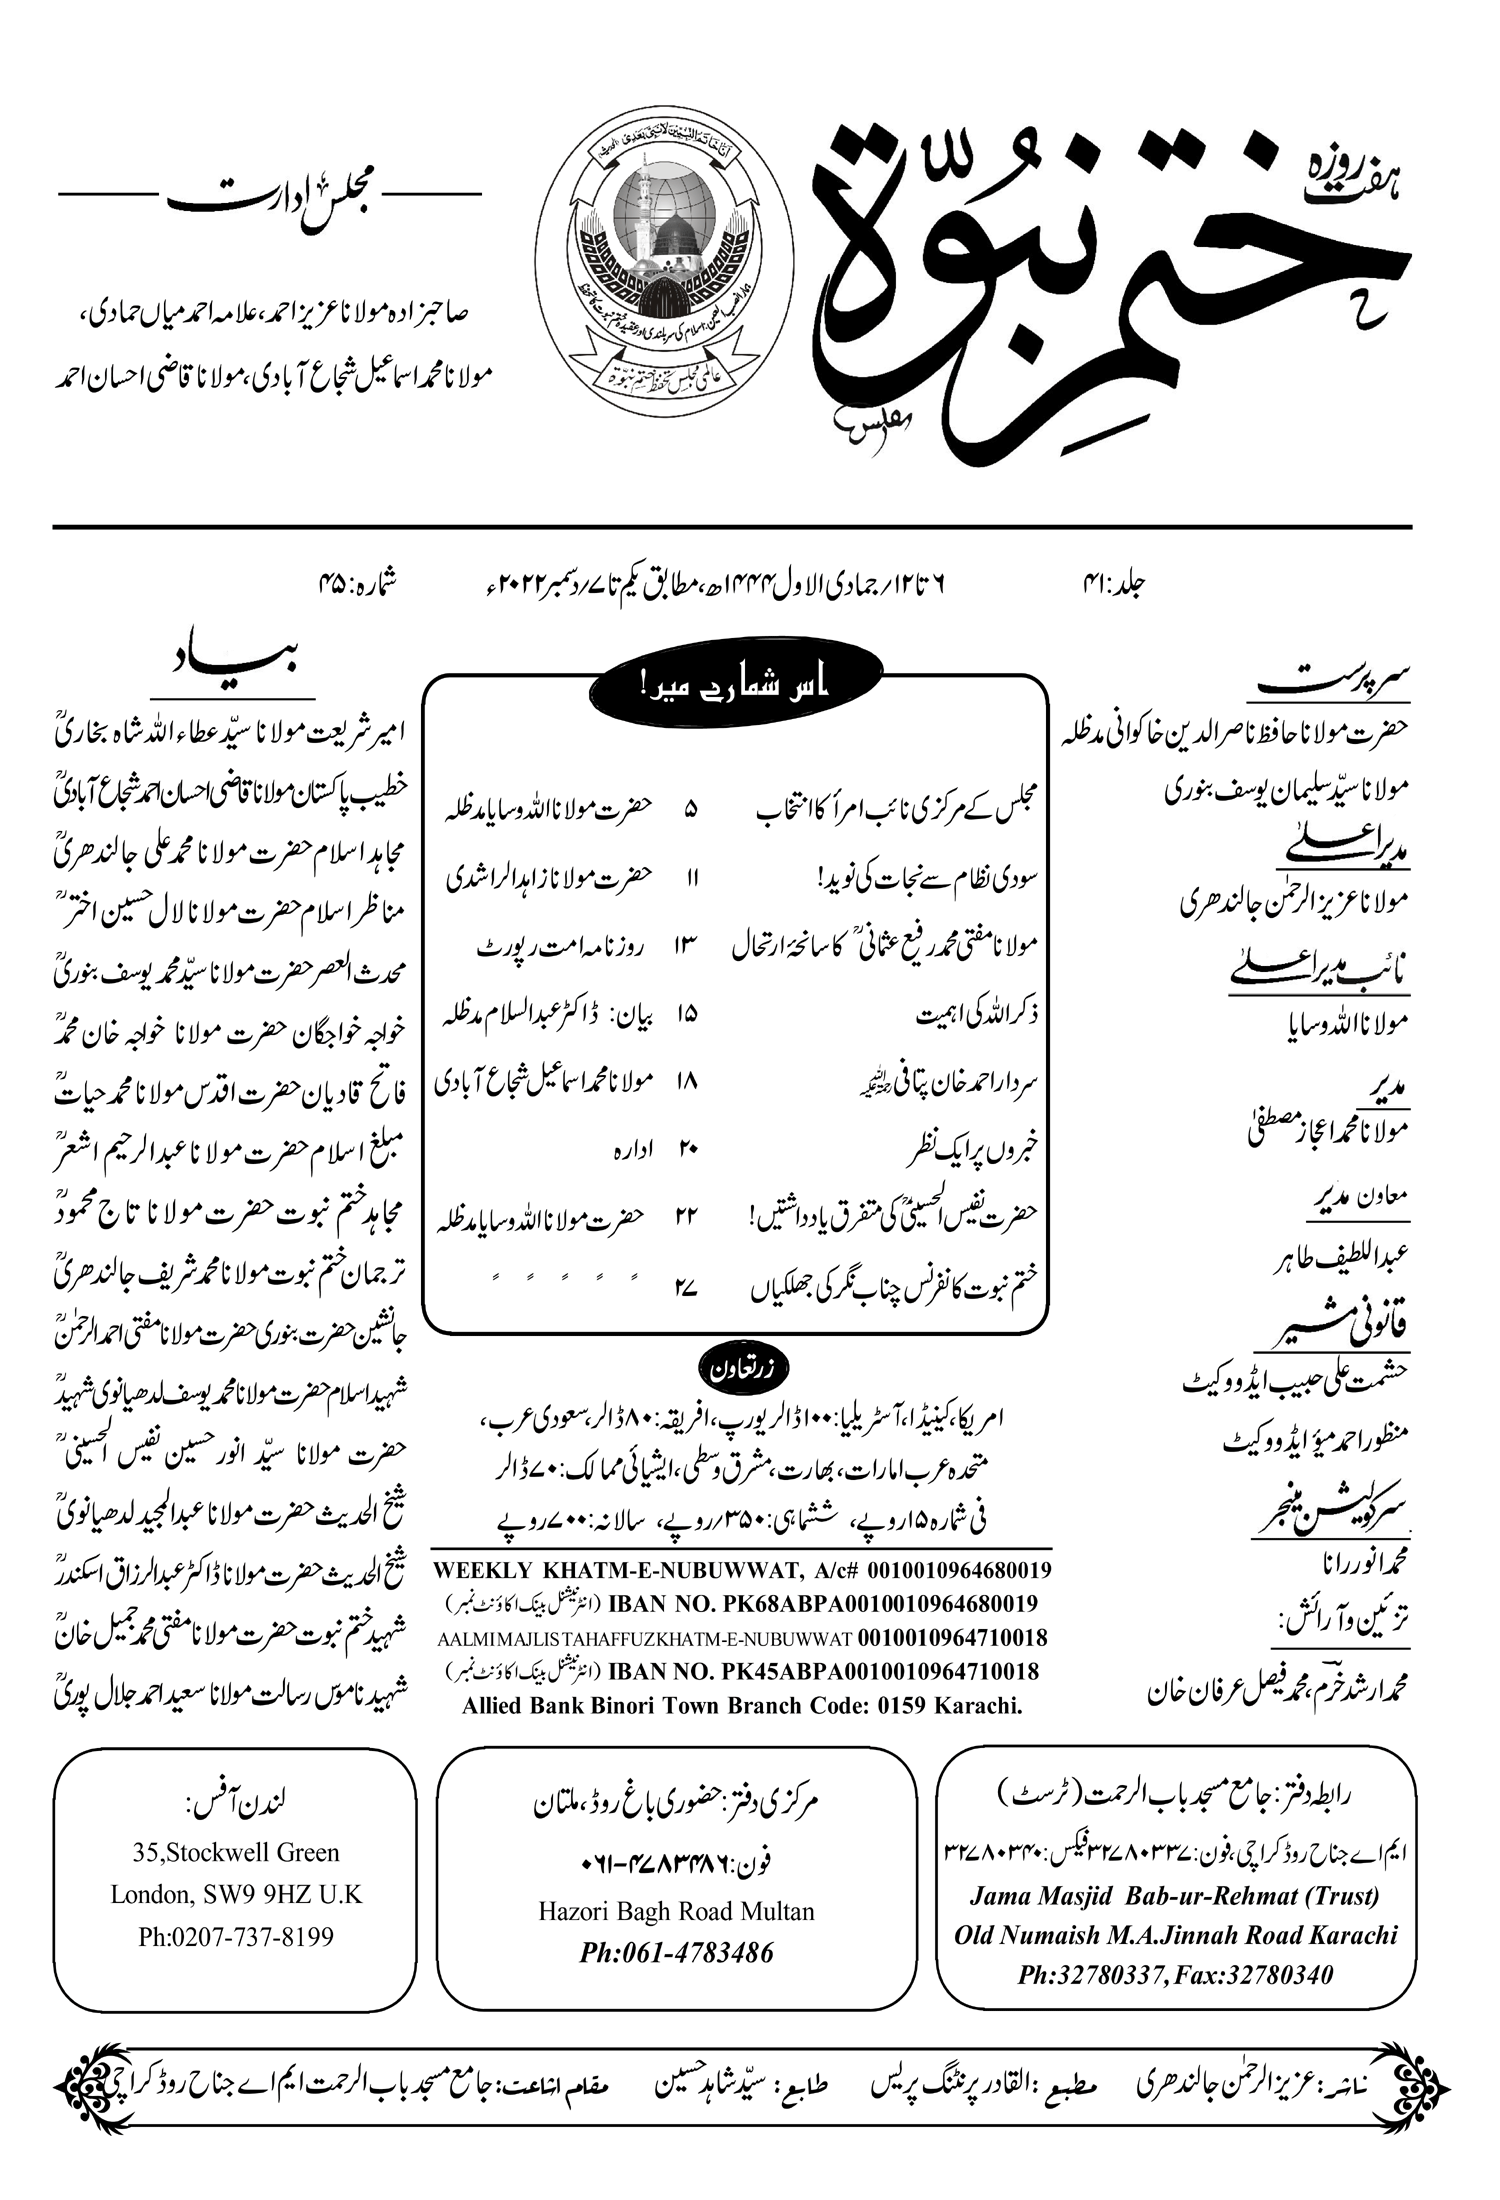 ہفت روزہ
ختم نبوّۃ
مجلس ادارت
صاحبزادہ مولانا عزیز احمد، علامہ احمد میاں حمادی،
مولانا محمد اسماعیل شجاع آبادی، مولانا قاضی احسان احمد
اَنَا خَاتَمُ النَّبِیّٖنَ لَا نَبِیَّ بَعْدِی
عالمی مجلس تحفظ ختم نبوّۃ
جلد: ۴۱
۶ تا ۱۲/ جمادی الاول ۱۴۴۴ھ، مطابق یکم تا ۷/ دسمبر ۲۰۲۲ء
شمارہ: ۴۵
سرپرست
حضرت مولانا حافظ ناصر الدین خاکوانی مدظلہ
مولانا سیّد سلیمان یوسف بنوری
مدیر اعلےٰ
مولانا عزیز الرحمٰن جالندھری
نائب مدیر اعلےٰ
مولانا اللہ وسایا
مدیر
مولانا محمد اعجاز مصطفیٰ
معاون مدیر
عبداللطیف طاہر
قانونی مشیر
حشمت علی حبیب ایڈووکیٹ
منظور احمد میؤ ایڈووکیٹ
سرکولیشن منیجر
محمد انور رانا
تزئین و آرائش:
محمد ارشد خرم، محمد فیصل عرفان خان
اس شمارے میں!
مجلس کے مرکزی نائب امرأ کا انتخاب ۵ حضرت مولانا اللہ وسایا مدظلہ
سودی نظام سے نجات کی نوید! ۱۱ حضرت مولانا زاہد الراشدی
مولانا مفتی محمد رفیع عثمانیؒ کا سانحۂ ارتحال ۱۳ روزنامہ امت رپورٹ
ذکر اللہ کی اہمیت ۱۵ بیان: ڈاکٹر عبدالسلام مدظلہ
سردار احمد خان پتافی رحمۃ اللہ علیہ ۱۸ مولانا محمد اسماعیل شجاع آبادی
خبروں پر ایک نظر ۲۰ ادارہ
حضرت نفیس الحسینیؒ کی متفرق یادداشتیں! ۲۲ حضرت مولانا اللہ وسایا مدظلہ
ختم نبوت کانفرنس چناب نگر کی جھلکیاں ۲۷ ״ ״ ״ ״ ״
زر تعاون
امریکا، کینیڈا، آسٹریلیا: ۱۰۰ ڈالر یورپ، افریقہ: ۸۰ ڈالر، سعودی عرب،
متحدہ عرب امارات، بھارت، مشرق وسطی، ایشیائی ممالک: ۷۰ ڈالر
فی شمارہ ۱۵ روپے، ششماہی: ۳۵۰/ روپے، سالانہ: ۷۰۰ روپے
WEEKLY KHATM-E-NUBUWWAT, A/c# 0010010964680019
IBAN NO. PK68ABPA0010010964680019 (انٹرنیشنل بینک اکاؤنٹ نمبر)
AALMI MAJLIS TAHAFFUZ KHATM-E-NUBUWWAT 0010010964710018
IBAN NO. PK45ABPA0010010964710018 (انٹرنیشنل بینک اکاؤنٹ نمبر)
Allied Bank Binori Town Branch Code: 0159 Karachi.
بیاد
امیر شریعت مولانا سیّد عطاء اللہ شاہ بخاریؒ
خطیب پاکستان مولانا قاضی احسان احمد شجاع آبادیؒ
مجاہد اسلام حضرت مولانا محمد علی جالندھریؒ
مناظر اسلام حضرت مولانا لال حسین اخترؒ
محدث العصر حضرت مولانا سیّد محمد یوسف بنوریؒ
خواجہ خواجگان حضرت مولانا خواجہ خان محمدؒ
فاتح قادیان حضرت اقدس مولانا محمد حیاتؒ
مبلغ اسلام حضرت مولانا عبدالرحیم اشعرؒ
مجاہد ختم نبوت حضرت مولانا تاج محمودؒ
ترجمان ختم نبوت مولانا محمد شریف جالندھریؒ
جانشین حضرت بنوری حضرت مولانا مفتی احمد الرحمٰنؒ
شہید اسلام حضرت مولانا محمد یوسف لدھیانوی شہیدؒ
حضرت مولانا سیّد انور حسین نفیس الحسینیؒ
شیخ الحدیث حضرت مولانا عبدالمجید لدھیانویؒ
شیخ الحدیث حضرت مولانا ڈاکٹر عبدالرزاق اسکندرؒ
شہید ختم نبوت حضرت مولانا مفتی محمد جمیل خانؒ
شہید ناموس رسالت مولانا سعید احمد جلال پوریؒ
رابطہ دفتر: جامع مسجد باب الرحمت (ٹرسٹ)
ایم اے جناح روڈ کراچی، فون: ۳۲۷۸۰۳۳۷ فیکس: ۳۲۷۸۰۳۴۰
Jama Masjid Bab-ur-Rehmat (Trust)
Old Numaish M.A.Jinnah Road Karachi
Ph:32780337, Fax:32780340
مرکزی دفتر: حضوری باغ روڈ، ملتان
فون: ۰۶۱-۴۷۸۳۴۸۶
Hazori Bagh Road Multan
Ph:061-4783486
لندن آفس:
35,Stockwell Green
London, SW9 9HZ U.K
Ph:0207-737-8199
ناشر: عزیز الرحمٰن جالندھری مطبع: القادر پرنٹنگ پریس طابع: سیّد شاہد حسین مقام اشاعت: جامع مسجد باب الرحمت ایم اے جناح روڈ کراچی